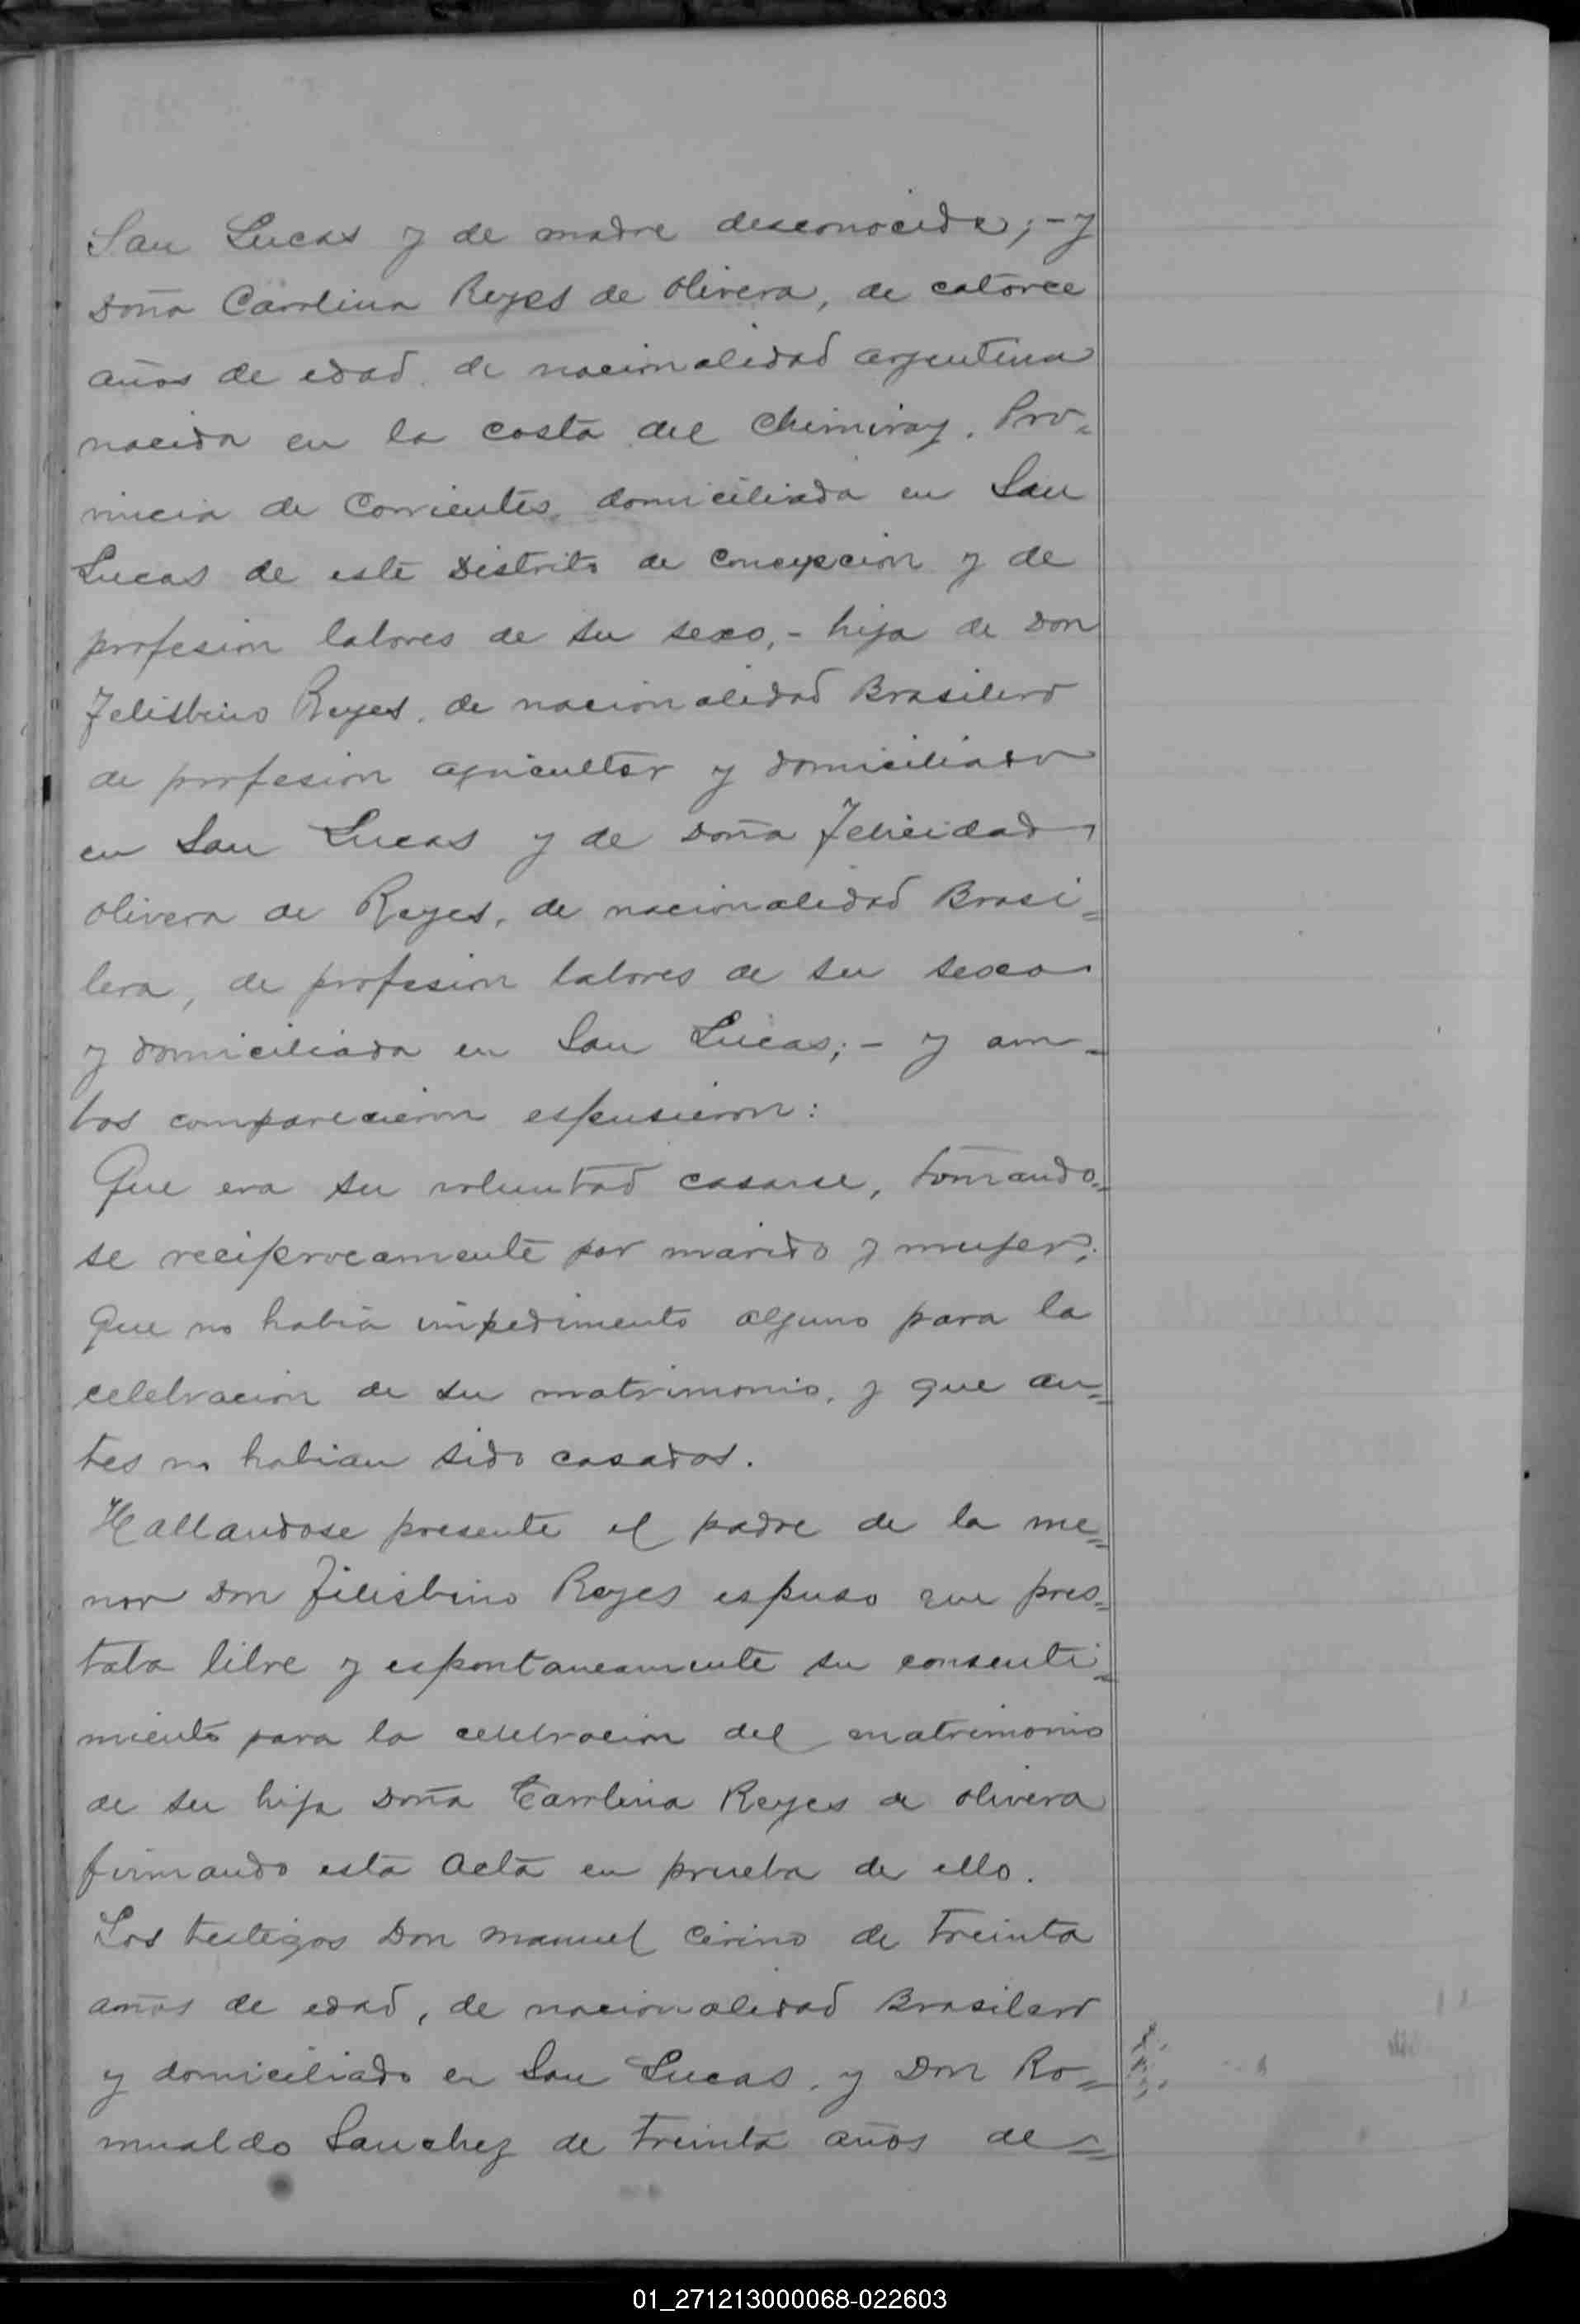 San Lucas y de madre desconocida; - y
Doña Carolina Reyes de Olivera, de catorce
años de edad, de nacionalidad argentina
nacida en la costa del Chimiray, Pro=
vincia de Corrientes, domiciliada en San
Lucas de este Distrito de Concepcion y de
profesion labores de su sexo, - hija de Don
Felisbino Reyes, de nacionalidad Brasilero
de profesion agricultor y domiciliado
en San Lucas y de Doña Felicidad
Olivera de Reyes, de nacionalidad Brasi=
lera, de profesion labores de su sexo
y domiciliada en San Lucas; - y am=
bos comparecieron espusieron:
Que era su voluntad casarse, tomando=
se reciprocamente por marido y mujer;
Que no habia impedimento alguno para la
celebracion de su matrimonio, y que an=
tes no habian sido casados.
Hallandose presente el padre de la me=
nor Don Filisbino Reyes espuso que pres=
taba libre y espontaneamente su consenti=
miento para la celebracion del matrimonio
de su hija Doña Carolina Reyes de Olivera
firmando esta acta en prueba de ello.
Los testigos Don Manuel Cirino de treinta
años de edad, de nacionalidad Brasilero
y domiciliado en San Lucas, y Don Ro=
mualdo Sanchez de treinta años de=
01_271213000068-022603